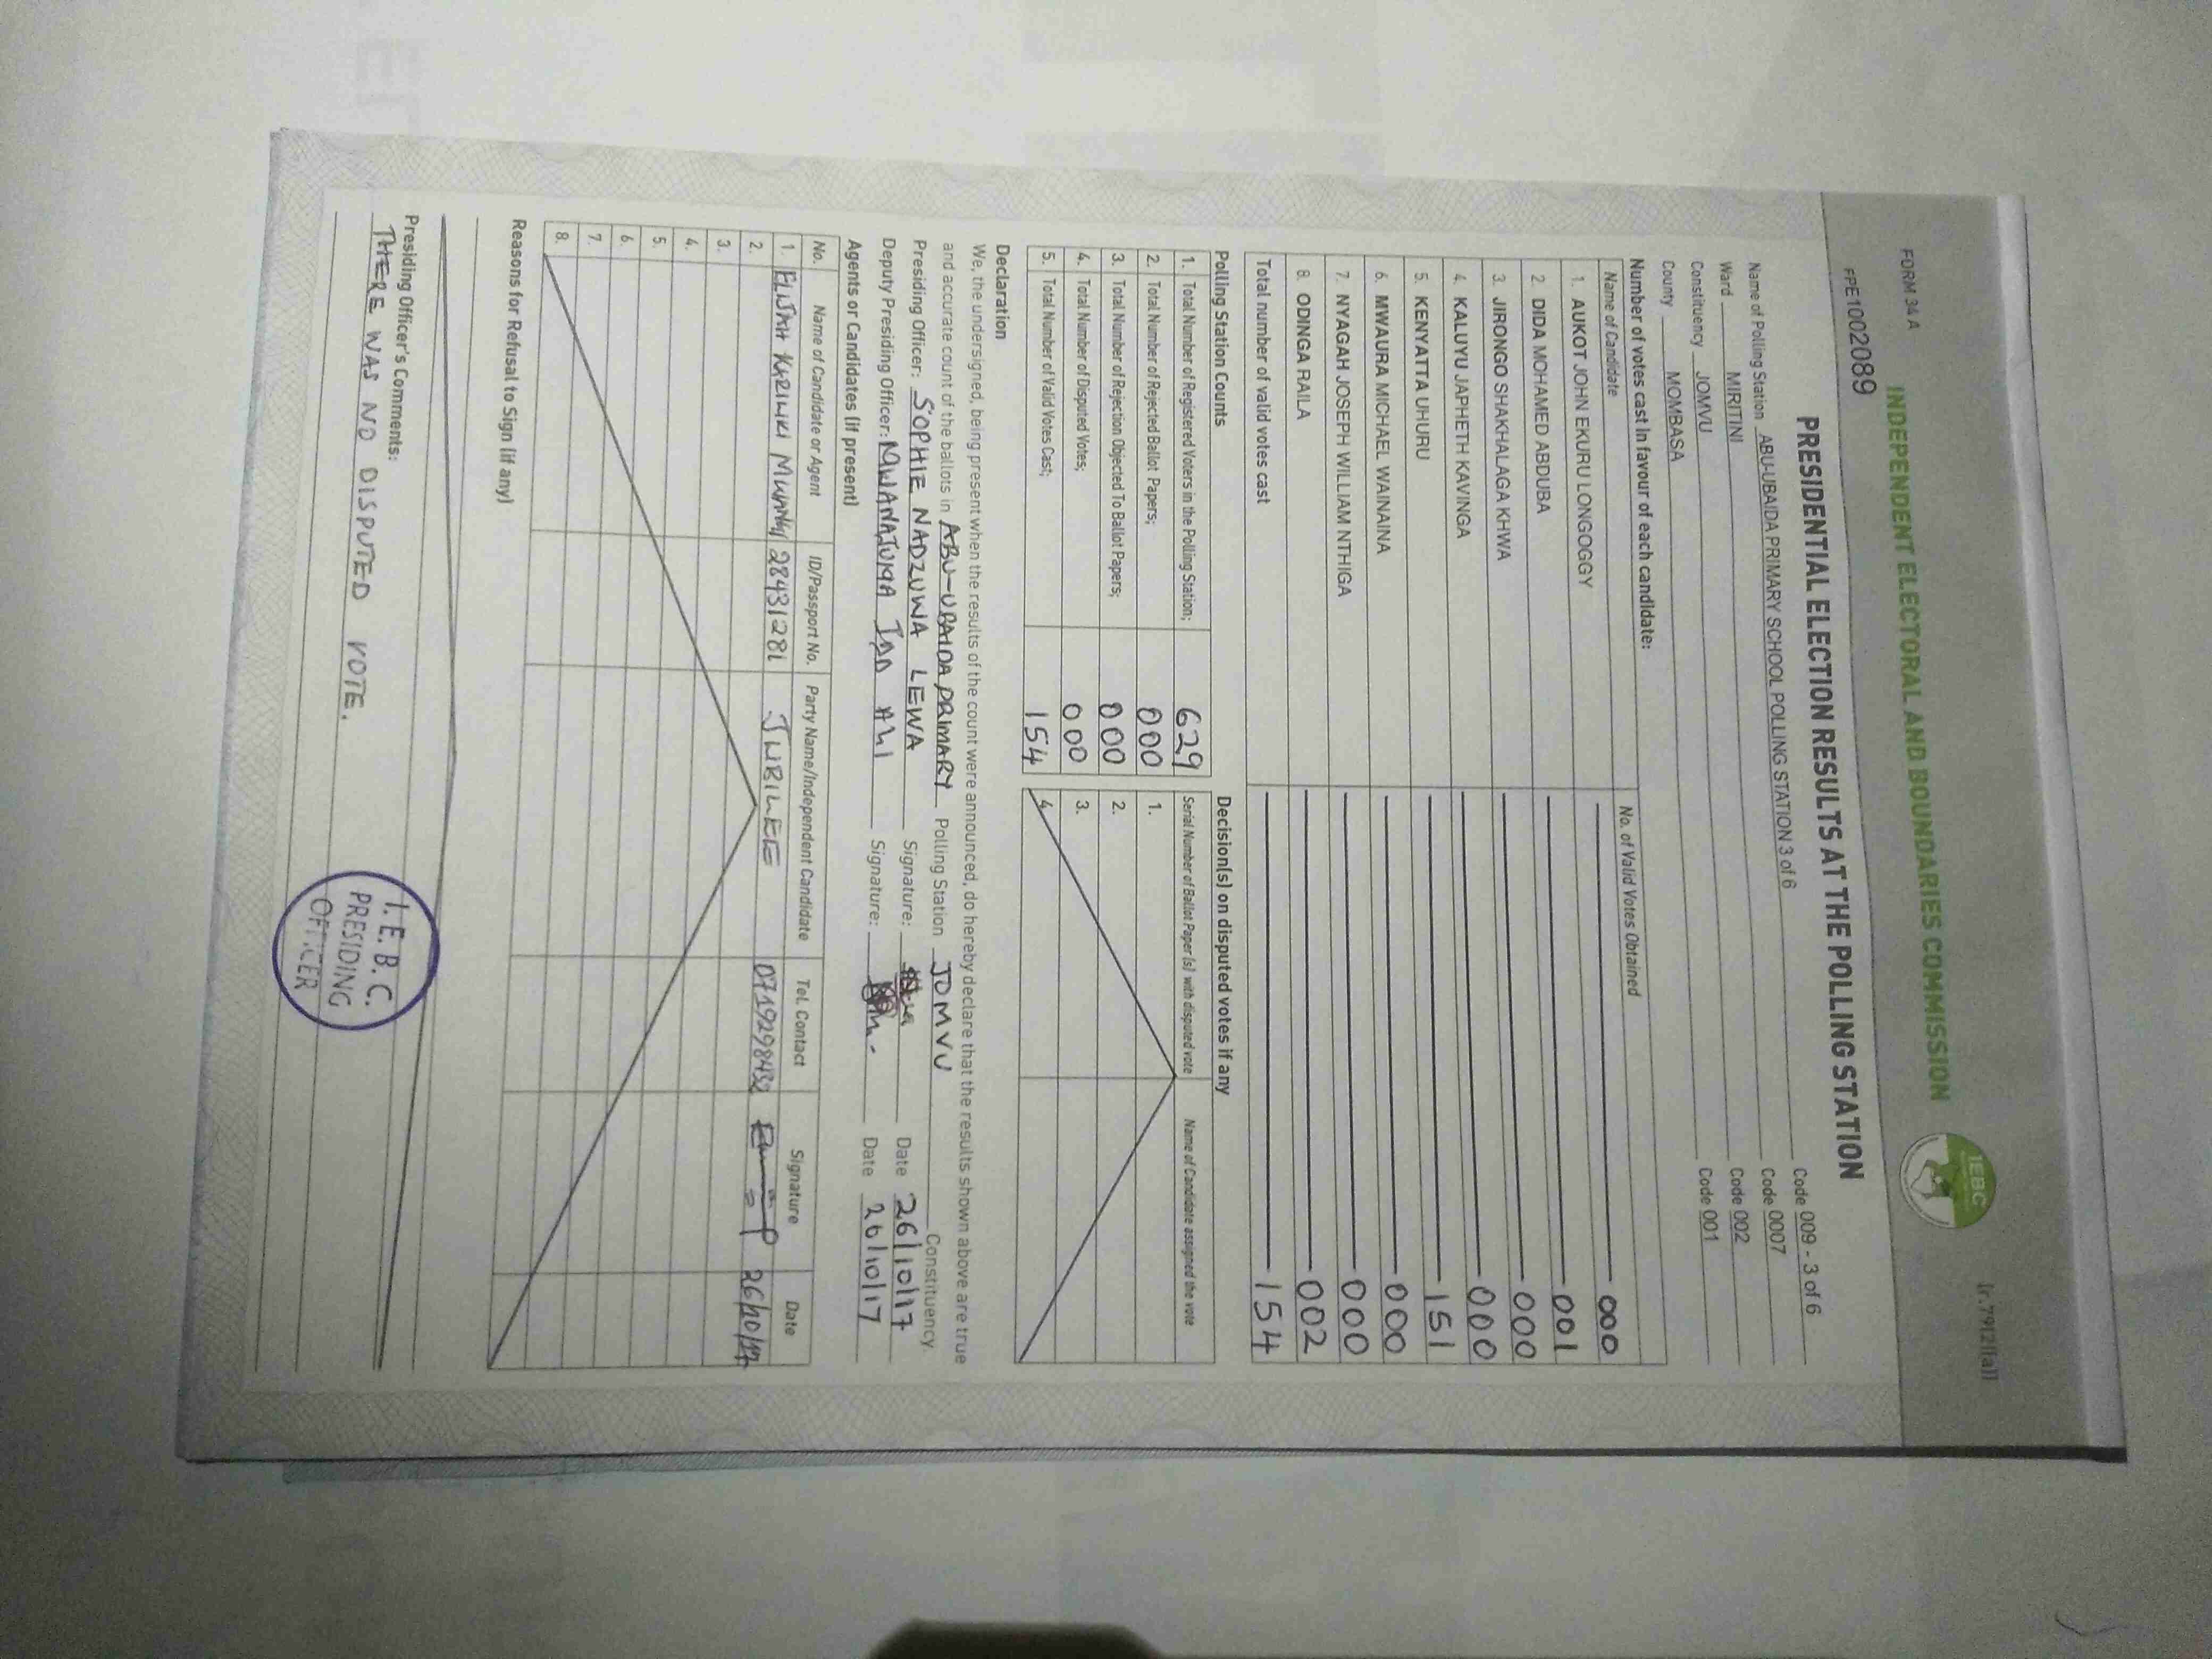 FORM 34 A
(r.79(2)(a))
INDEPENDENT ELECTORAL AND BOUNDARIES COMMISSION
IEBC
FPE1002089
PRESIDENTIAL ELECTION RESULTS AT THE POLLING STATION
Name of Polling Station ABU-UBAIDA PRIMARY SCHOOL POLLING STATION 3 of 6 Code 009 - 3 of 6
Ward MIRITINI Code 0007
Constituency JOMVU Code 002
County MOMBASA Code 001
Number of votes cast in favour of each candidate:
Name of Candidate No. of Valid Votes Obtained
1. AUKOT JOHN EKURU LONGOGGY 000
2. DIDA MOHAMED ABDUBA 001
3. JIRONGO SHAKHALAGA KHWA 000
4. KALUYU JAPHETH KAVINGA 000
5. KENYATTA UHURU 151
6. MWAURA MICHAEL WAINAINA 000
7. NYAGAH JOSEPH WILLIAM NTHIGA 000
8. ODINGA RAILA 002
Total number of valid votes cast 154
Polling Station Counts Decision(s) on disputed votes if any
1. Total Number of Registered Voters in the Polling Station; 629 Serial Number of Ballot Paper (s) with disputed vote Name of Candidate assigned the vote
2. Total Number of Rejected Ballot Papers; 000 1.
3. Total Number of Rejection Objected To Ballot Papers; 000 2.
4. Total Number of Disputed Votes; 000 3.
5. Total Number of Valid Votes Cast; 154 4.
Declaration
We, the undersigned, being present when the results of the count were announced, do hereby declare that the results shown above are true
and accurate count of the ballots in ABU-UBAIDA PRIMARY Polling Station JOMVU Constituency
Presiding Officer: SOPHIE NADZUWA LEWA Signature: Date 26/10/17
Deputy Presiding Officer: MWANAJUMA IDD ALI Signature: Date 26/10/17
Agents or Candidates (if present)
No. Name of Candidate or Agent ID/Passport No. Party Name/Independent Candidate Tel. Contact Signature Date
1. ELIJAH KARIUKI MWANGI 28431281 JUBILEE 0719298432 26/10/17
2.
3.
4.
5.
6.
7.
8.
Reasons for Refusal to Sign (if any)
Presiding Officer's Comments:
THERE WAS NO DISPUTED VOTE.
I.E.B.C.
PRESIDING
OFFICER